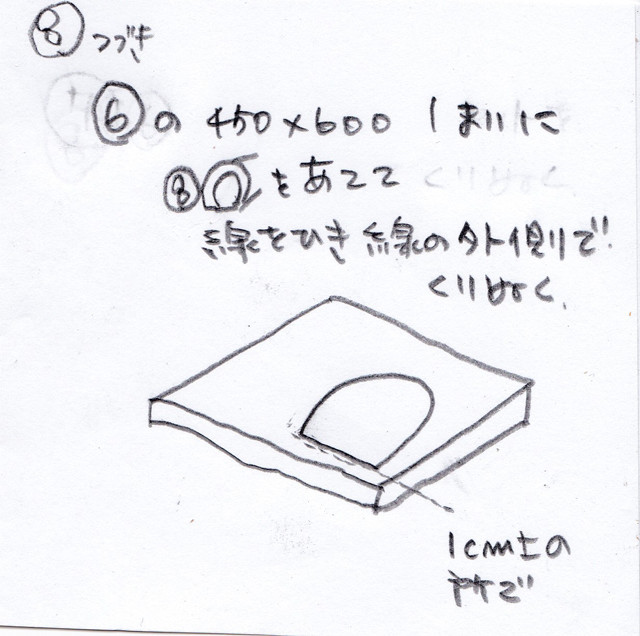 ⑧つづき
⑥の 450×600 1まいに
⑧をあてて
線をひき線の外側で
くりぬく.
1cm±の
所で